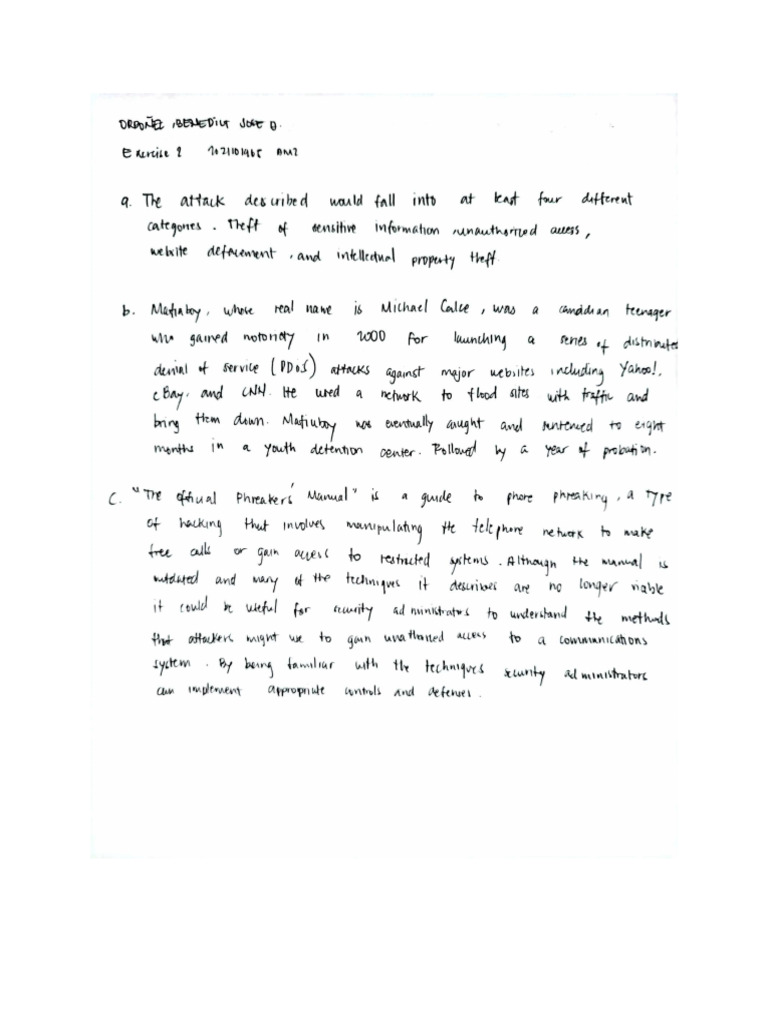 ORDOÑEZ, BENEDICT JOSE O.
Exercise 2 AM2
a. The attack described would fall into at least four different
categories. Theft of sensitive information, unauthorized access,
website defacement, and intellectual property theft.
b. Mafiaboy, whose real name is Michael Calce, was a canadian teenager
who gained notoriety in 2000 for launching a series of distributed
denial of service (DDoS) attacks against major websites including Yahoo!,
eBay, and CNN. He used a network to flood sites with traffic and
bring them down. Mafiaboy was eventually caught and sentenced to eight
months in a youth detention center. Followed by a year of probation.
C. "The official Phreaker's Manual" is a guide to phone phreaking, a type
of hacking that involves manipulating the telephone network to make
free calls or gain access to restricted systems. Although the manual is
outdated and many of the techniques it describes are no longer viable
it could be useful for security administrators to understand the methods
that attackers might use to gain access to a communications
system. By being familiar with the techniques security administrators
can implement appropriate controls and defenses.